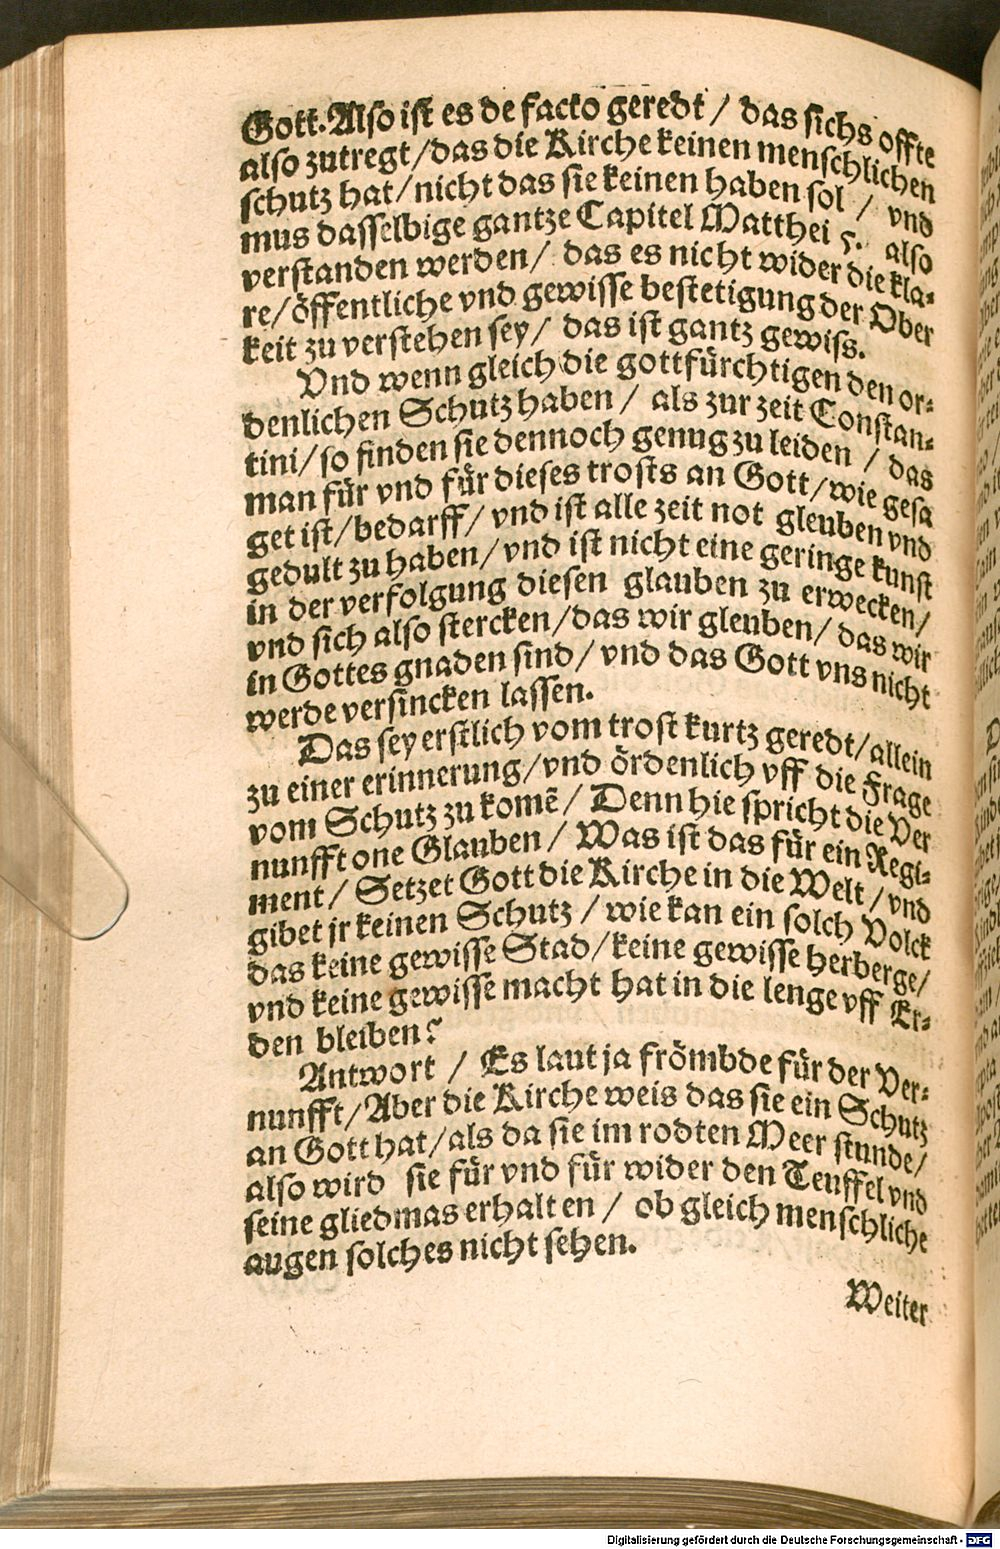 Gott. Also ist es de facto geredt / das sichs offte
also zutregt / das die Kirche keinen menschlichen
schutz hat / nicht das sie keinen haben sol / vnd
mus dasselbige gantze Capitel Matthei 5. also
verstanden werden / das es nicht wider die kla⸗
re / öffentliche vnd gewisse bestetigung der Ober
keit zu verstehen sey / das ist gantz gewiss.
Vnd wenn gleich die gottfürchtigen den or⸗
denlichen Schutz haben / als zur zeit Constan⸗
tini / so finden sie dennoch genug zu leiden / das
man für vnd für dieses trosts an Gott / wie gesa
get ist / bedarff / vnd ist alle zeit not gleuben vnd
gedult zu haben / vnd ist nicht eine geringe kunst
in der verfolgung diesen glauben zu erwecken /
vnd sich also stercken / das wir gleuben / das wir
in Gottes gnaden sind / vnd das Gott vns nicht
werde versincken lassen.
Das sey erstlich vom trost kurtz geredt / allein
zu einer erinnerung / vnd ördenlich vff die Frage
vom Schutz zu komẽ / Denn hie spricht die Ver
nunfft one Glauben / Was ist das für ein Regi⸗
ment / Setzet Gott die Kirche in die Welt / vnd
gibet jr keinen Schutz / wie kan ein solch Volck
das keine gewisse Stad / keine gewisse herberge /
vnd keine gewisse macht hat in die lenge vff Er⸗
den bleiben?
Antwort / Es laut ja frömbde für der Ver⸗
nunfft / Aber die Kirche weis das sie ein Schutz
an Gott hat / als da sie im rodten Meer stunde /
also wird sie für vnd für wider den Teuffel vnd
seine gliedmas erhalten / ob gleich menschliche
augen solches nicht sehen.
Weiter
Digitalisierung gefördert durch die Deutsche Forschungsgemeinschaft - DFG